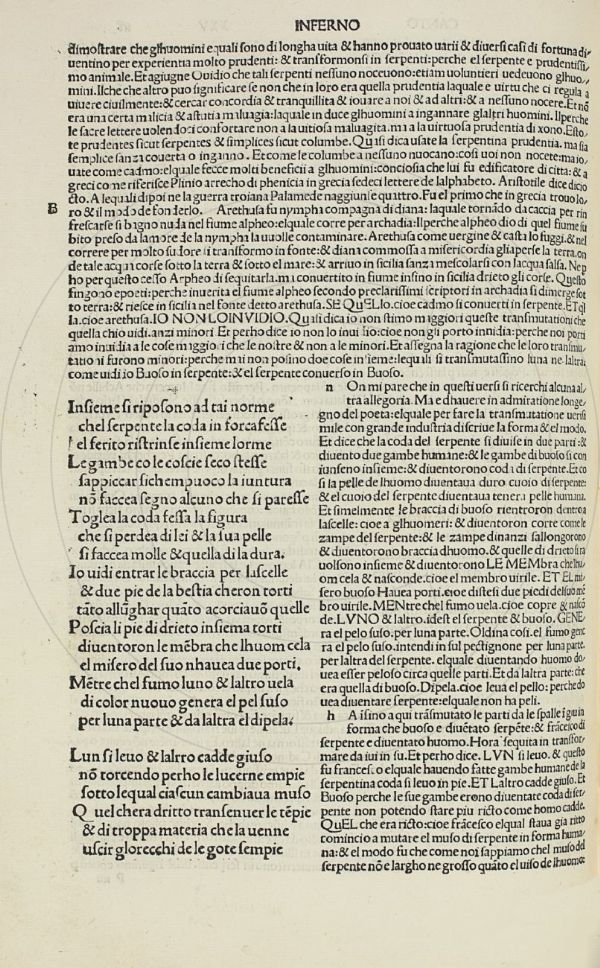 INFERNO
dimostrare che glhuomini equali sono di longha uita & hanno prouato uarii & diuersi casi di fortuna di-
uentino per experientia molto prudenti: & transformonsi in serpenti: perche el serpente e prudentissi
mo animale. Et agiugne Ouidio che tali serpenti nessuno noceuono: etiam uoluntieri uedeuono glhuo
mini. Ilche che altro puo significare se non che in loro era quella prudentia laquale e uirtu che ci regula a
uiuere ciuilmente: & cercar concordia & tranquillita & iouare a noi & ad altri: & a nessuno nocere. Et nō
era una certa malicia & astutia maluagia: laquale in duce glhuomini a ingannare glaltri huomini. Ilperche
le sacre lettere uolendoci confortare non a la uitiosa maluagita. ma a la uirtuosa prudentia dixono. Esto
te prudentes sicut serpentes & simplices sicut columbe. Quasi dica usate la serpentina prudentia. ma sia
semplice sanza couerta o inganno. Et come le columbe a nessuno nuocano: cosi uoi non nocete: ma io
uate come cadmo: elquale fecce molti beneficii a glhuomini: conciosia che lui fu edificatore di citta: & a
greci come riferisce Plinio arrecho di phenicia in grecia sedeci lettere de lalphabeto. Aristotile dice dicio
cto. A lequali dipoi ne la guerra troiana Palamede naggiunse quattro. Fu el primo che in grecia trouo lo
B ro & il modo de fonderlo. Arethusa fu nympha compagna di diana: laquale tornādo da caccia per rin
frescarse si bagno nuda nel fiume alpheo: elquale corre per archadia: Ilperche alpheo dio di quel fiume su
bito preso da lamore de la nympha la uuolle contaminare. Arethusa come uergine & casta lo fuggi: & nel
correre per molto sudore si transformo in fonte: & diana commossa a misericordia gliaperse la terra. on
de tale acqua corse sotto la terra & sotto el mare: & arriuo in sicilia sanza mescolarsi con lacqua salsa. Ne p
ho per questo cesso Arpheo di seguitarla. ma conuertito in fiume insino in sicilia drieto gli corse. Questo
fingono epoeti: perche inuerita el fiume alpheo secondo preclarissimi scriptori in archadia si dimerge sot
to terra: & riesce in sicilia nel fonte detto arethusa. SE QUELlo. cioe cadmo si conuerti in serpente. ET q̄l
la. cioe arethusa. IO NON LOINVIDIO. Quasi dica io non stimo maggiori queste transmutationi che
quella chio uidi. anzi minori. Et perho dice io non lo inui sio: cioe non gli porto inuidia: perche noi porti
amo inuidia a le cose maggiori che le nostre & non a le minori. Et assegna la ragione che le loro transmu
tatio ni furono minori: perche mai non posino doe cose insieme: lequali si transmutassino luna ne laltra:
come uidi io Buoso in serpente: & el serpente conuerso in Buoso.
Insieme si riposono ad tai norme
chel serpente la coda in forca fesse
el ferito ristrinse insieme lorme
Le gambe co le coscie seco stesse
sappiccar si chempuoco la iuntura
nō faccea segno alcuno che si paresse
Toglea la coda fessa la figura
che si perdea di lei & la sua pelle
si faccea molle & quella di la dura.
Io uidi entrar le braccia per lascelle
& due pie de la bestia cheron torti
tāto allūghar quāto acorciauō quelle
Poscia li pie di drieto insiema torti
diuentoron le mēbra che lhuom cela
el misero del suo nhauea due porti.
Mētre chel fumo luno & laltro uela
di color nuouo genera el pel suso
per luna parte & da laltra el dipela.
Lun si leuo & lalrro cadde giuso
nō torcendo perho le lucerne empie
sotto lequal ciascun cambiaua muso
Quel chera dritto transenuer le tēpie
& di troppa materia che la uenne
uscir glorecchi de le gote sempie
n On mi pare che in questi uersi si ricerchi alcuna al-
tra allegoria. Ma e dhauere in admiratione longe
gno del poeta: elquale per fare la transmutatione uersi
mile con grande industria discriue la forma & el modo.
Et dice che la coda del serpente si diuise in due parti: &
diuento due gambe humane: & le gambe di buoso si con
iunseno insieme: & diuentorono coda di serpente. Et co
si la pelle de lhuomo diuentaua duro cuoio di serpente:
& el cuoio del serpente diuentaua tenera pelle humana.
Et simelmente le braccia di buoso rientroron dentro a
lascelle: cioe a glhuomeri: & diuentoron corte come le
zampe del serpente: & le zampe dinanzi sallongorono
& diuentorono braccia dhuomo. & quelle di drieto si ra
uolsono insieme & diuentorono LE MEMbra che lhu
om cela & nasconde. cioe el membro uirile. ET EL mi-
sero buoso Hauea porti. cioe distesi due piedi del suo mē
bro uirile. MENtre chel fumo uela. cioe copre & nascō
de. LVNO & laltro. idest el serpente & buoso. GENE
ra el pelo suso. per luna parte. Ol dina cosi. el fumo gene
ra el pelo suso. intendi in sul pestignone per luna parte.
per laltra del serpente. elquale diuentando huomo do-
uea esser peloso circa quelle parti. Et da laltra parte: che
era quella di buoso. Dipela. cioe leua el pello: perche do
uea diuentare serpente: elquale non ha peli.
h A isino a qui trāsmutato le parti da le spalle i giu in
forma che buoso e diuētato serpēte: & frācesco di
serpente e diuentato huomo. Hora sequita in transfor-
mare da iui in su. Et perho dice. LVN si leuo. & questo
fu francesco elquale hauendo fatte gambe humane de la
serpentina coda si leuo in pie. ET Laltro cadde giuso. Et
Buoso perche le sue gambe erono diuentate coda di ser-
pente non potendo stare piu ricto come homo cadde.
QuEL che era ricto: cioe frācesco elqual staua gia ritto
comincio a mutare el muso di serpente in forma huma
na: & el modo fu che come noi sappiamo chel muso del
serpente nō e largho ne grosso quāto el uiso de lhuomo: